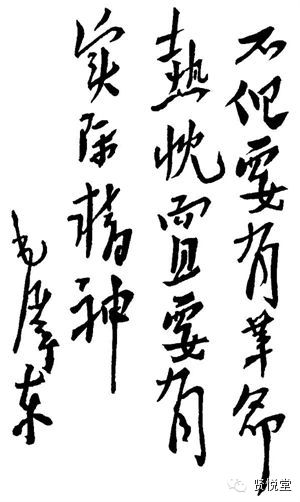 不但要有革命
熱忱而且要有
实际精神
毛澤东
贤悦堂